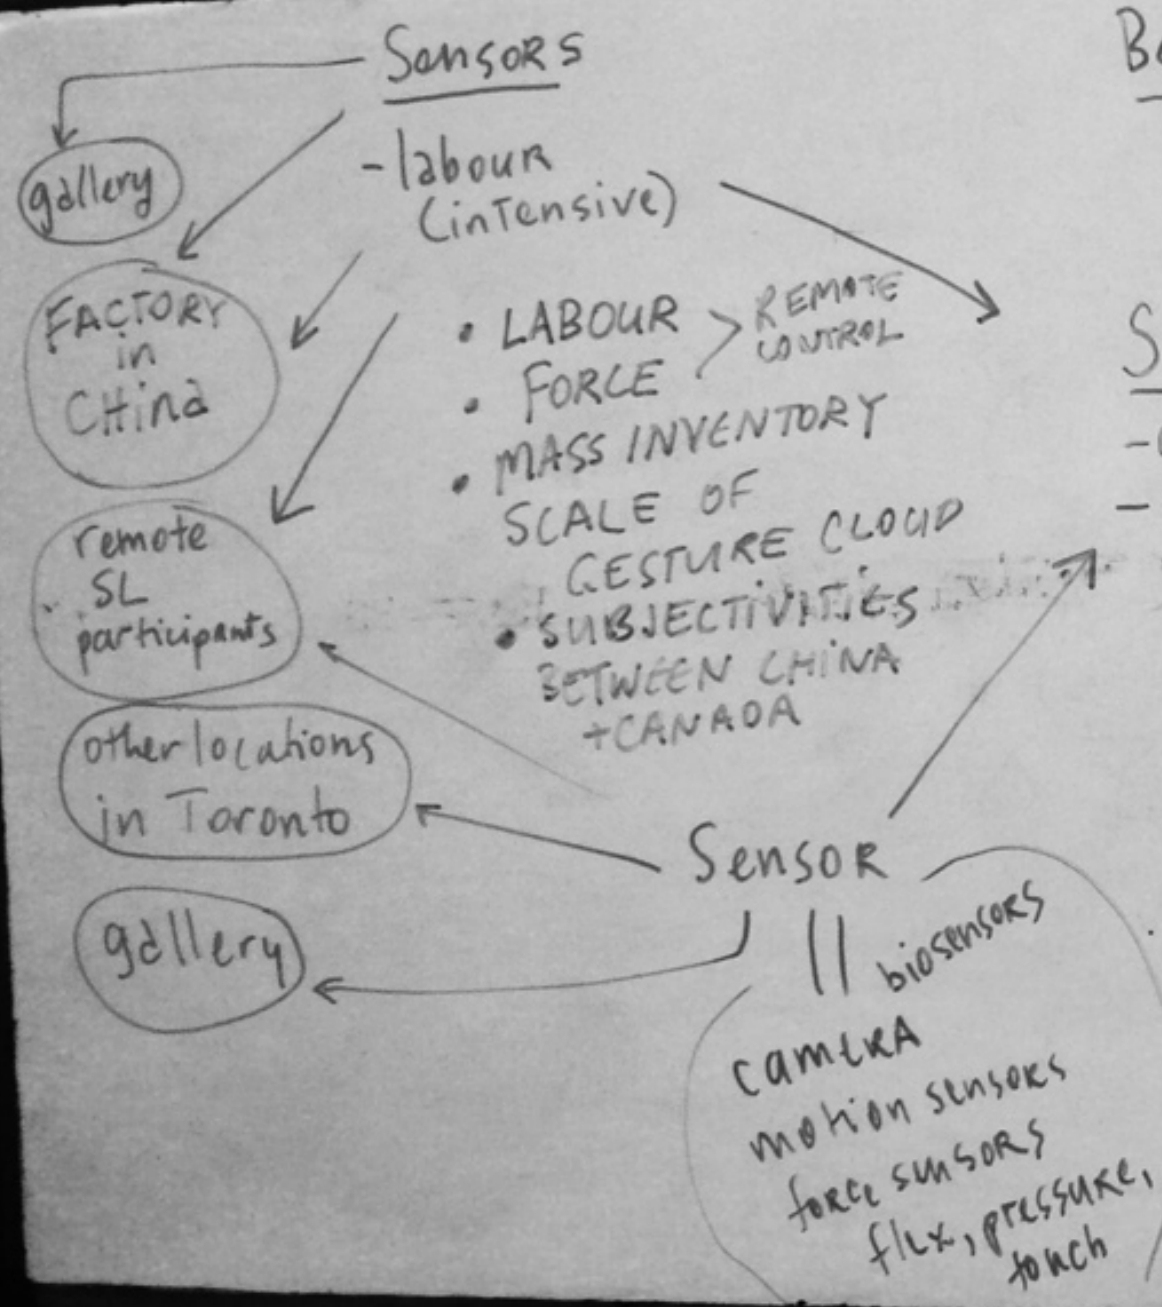 Sensors
- labour
(intensive)
gallery
FACTORY
in
China
remote
SL
participants
other locations
in Toronto
gallery
• LABOUR
• FORCE
> REMOTE
CONTROL
• MASS INVENTORY
SCALE OF
GESTURE CLOUD
• SUBJECTIVITIES
BETWEEN CHINA
+CANADA
Sensor
||
biosensors
camera
motion sensors
force sensors
flex, pressure,
touch
B
S
-
-